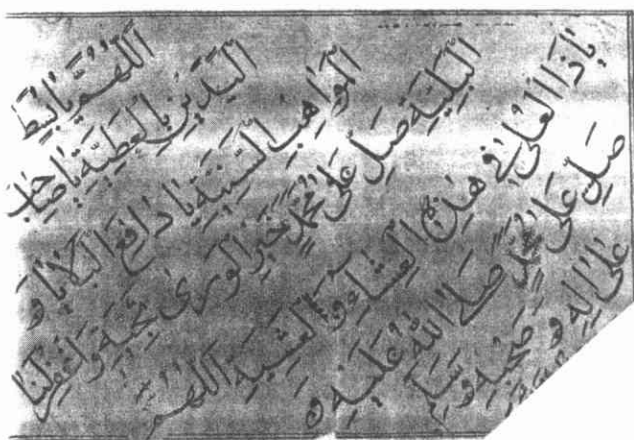 اَللّٰهُمَّ يَا بَاسِطَ
الْيَدَيْنِ بِالْعَطِيَّةِ يَا صَاحِبَ
الْمَوَاهِبِ السَّنِيَّةِ يَا دَافِعَ الْبَلَايَا وَ
الْبَلِيَّةِ صَلِّ عَلٰى مُحَمَّدٍ خَيْرِ الْوَرٰى سَجِيَّةً وَاغْفِرْلَنَا
يَاذَا الْعُلٰى فِى هٰذِهِ الْعِشَاءِ وَالْعَشِيَّةِ اَللّٰهُمَّ
صَلِّ عَلٰى مُحَمَّدٍ صَلَّى اللّٰهُ عَلَيْهِ وَ
عَلٰى اٰلِهٖ وَ صَحْبِهٖ وَسَلَّمَ